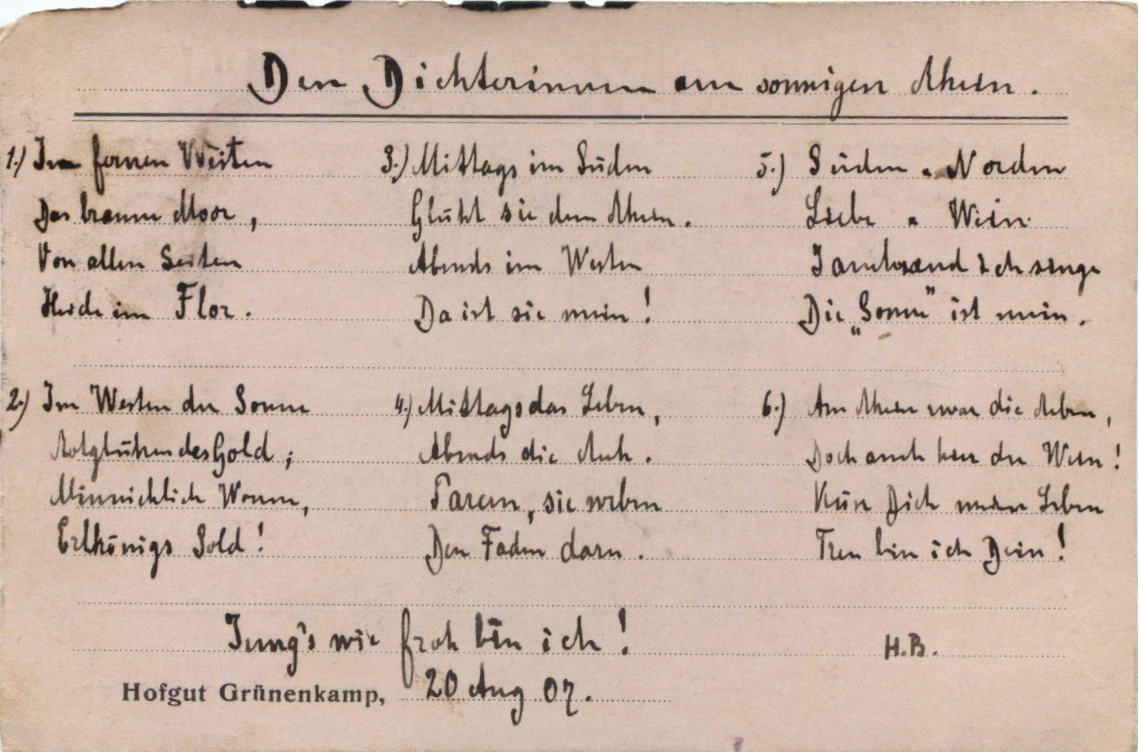 Den Dichterinnen am sonnigen Rhein.
1.) Im fernen Weiten
Das braune Moor,
Von allen Seiten
Heide im Flor.
2.) Im Westen der Sonne
Rotglühendes Gold;
Minniglich Wonne,
Erlkönigs Sold!
3.) Mittags im Süden
Glüht sie dem Rhein.
Abends im Westen
Da ist sie mein!
4.) Mittags das Leben,
Abends die Ruh.
Parzen, sie weben
Den Faden dazu.
5.) Süden u. Norden
Liebe u. Wein
ich singe
Die „Sonne" ist mein.
6.) Am Rhein zwar die Reben,
Doch auch hier der Wein!
Dich mein Leben
Treu bin ich Dein!
Jung's wie froh bin ich!
H.B.
Hofgut Grünenkamp, 20 Aug 07.